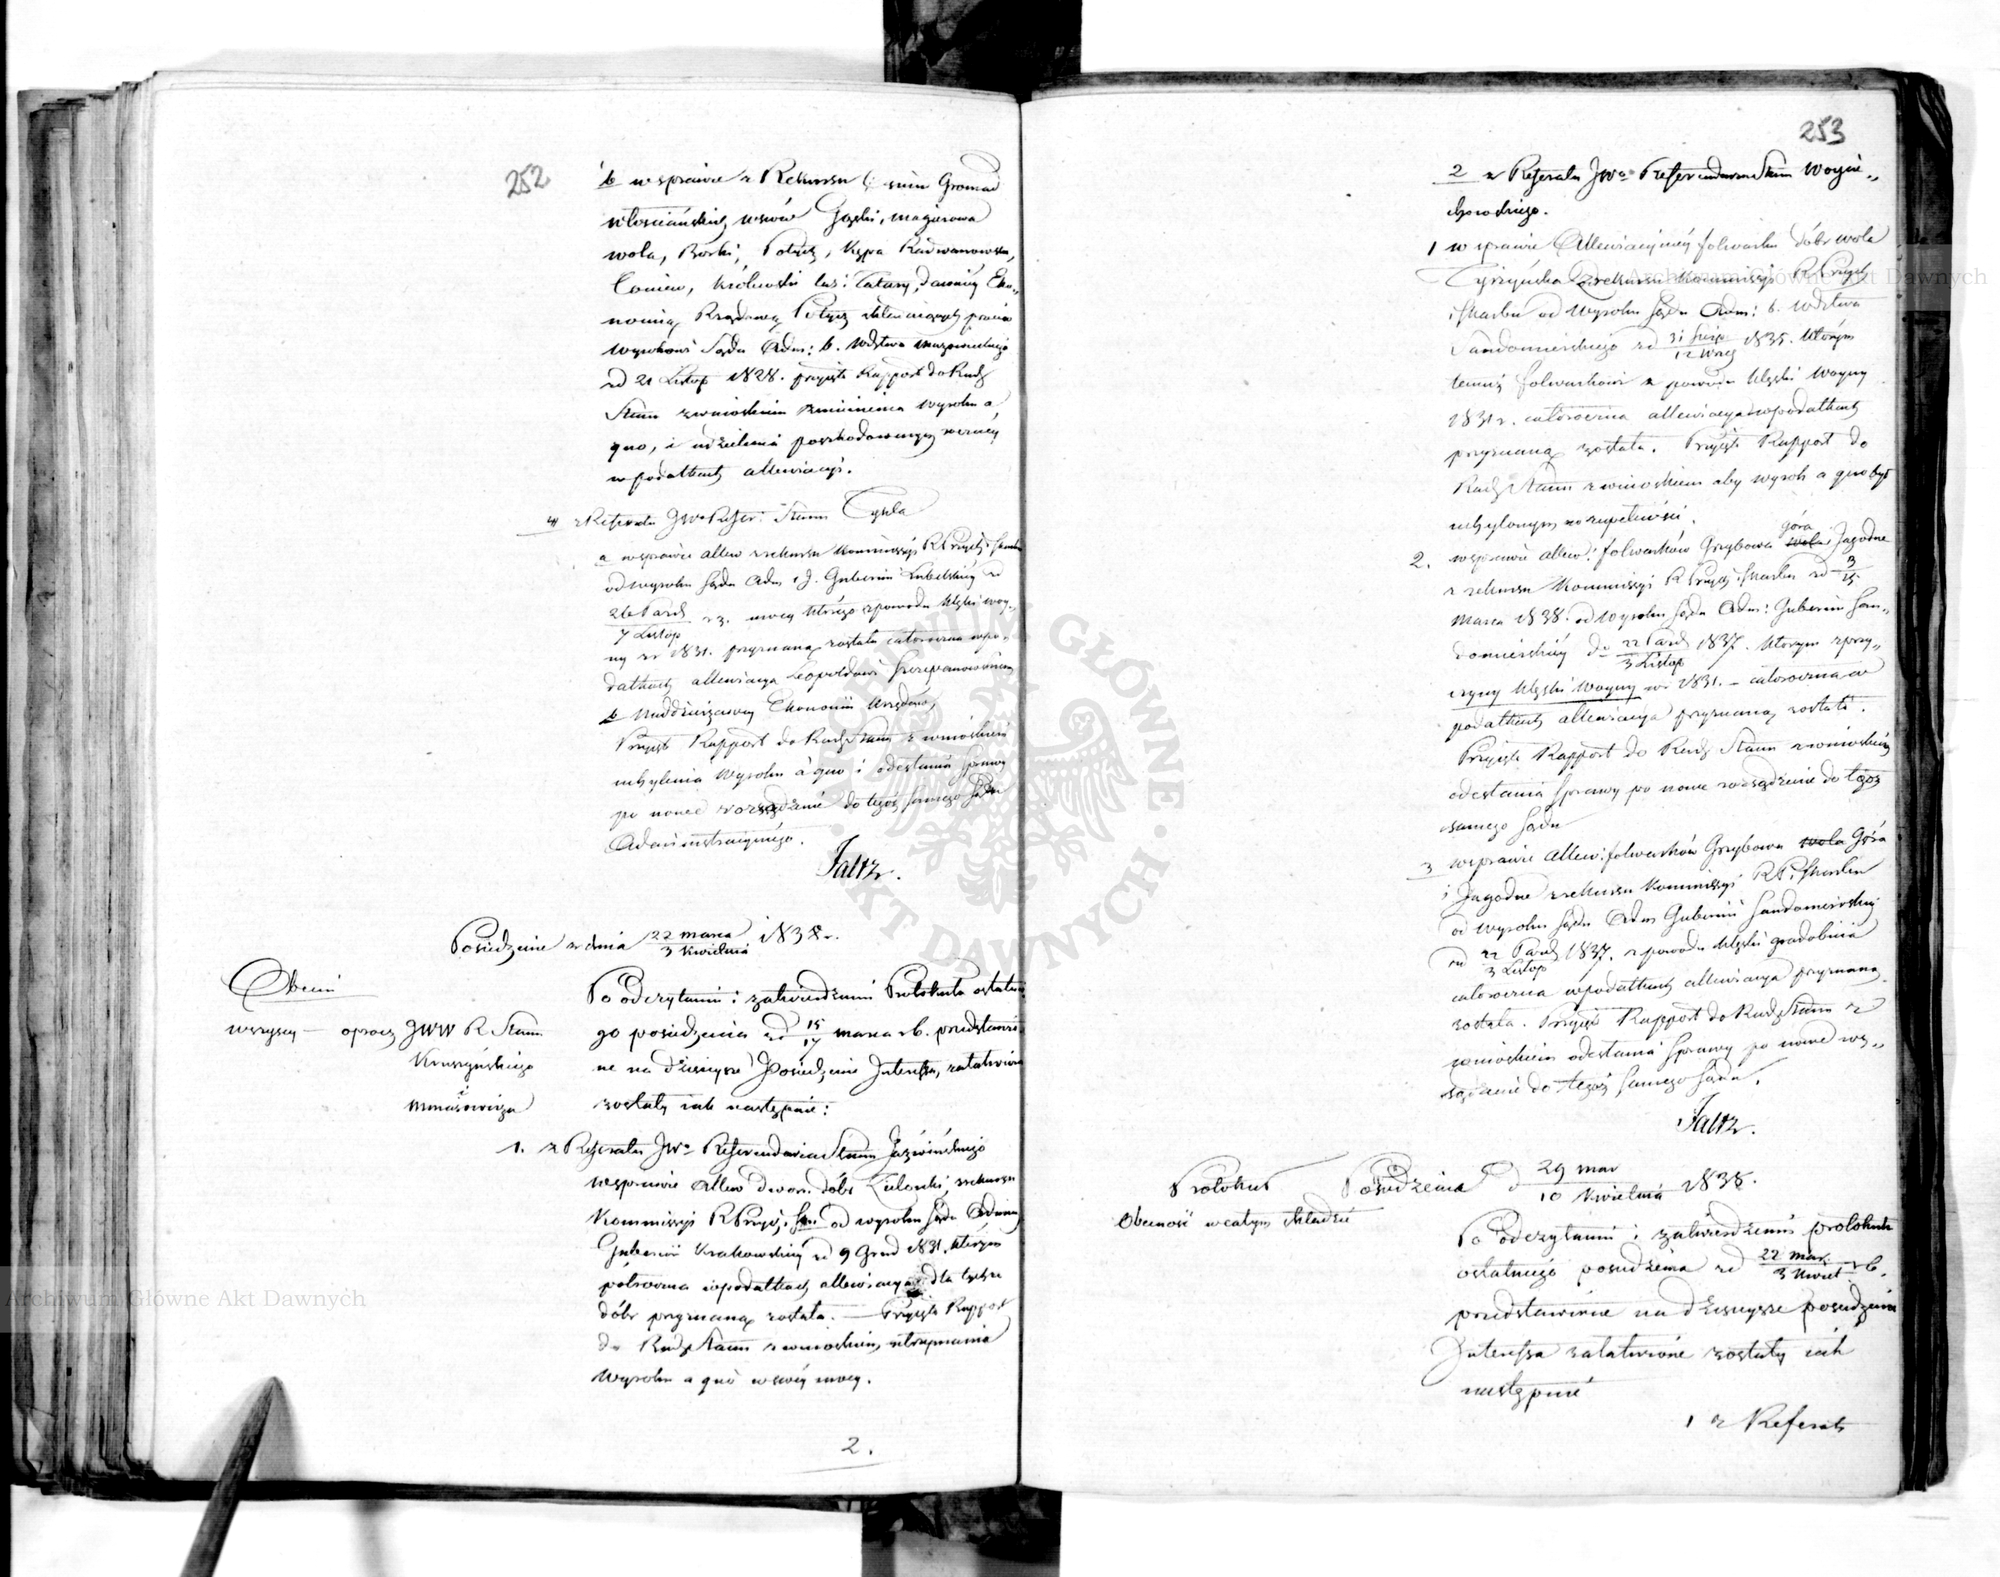 252
b w sprawie z Rekursu
włościańskich, wsiów Gąski, magierowa
wola, Borki, Potycz, Kępa Radwanowska,
Coniew, Królewski las i Tatary, dawniéy Eko„
nomią Rządową Potycz składaiących przeciw
wyrokowi Sądu Adm: b. Wdztwa mazowieckiego
od 21 Listop 1828. przyjęto Rapport do Rady
Stanu z wnioskiem zmienienia Wyroku a
quo, i udzielenia poszkodowanym
w podatkach allewiacyi.
4 z Referatu JWo Refer: Stanu Cysla
a w sprawie allew z rekursu Kommissyi R Przych i Skarbu
od wyroku Sądu Adm Gubernii Lubelskiéy od
26 Paźd
7 Listop r z. mocą którego z powodu klęski woy„
ny w r 1831. przyznaną została całoroczna w po„
datkach allewiacya Leopoldowi
b Naddzierżawcy Ekonomii Urzędów,
Przyjęto Rapport do Rady Stanu z wnioskiem
uchylenia Wyroku a quo i odesłania sprawy
po nowe rozsądzenie do tegoż samego Sądu
Administracyinego.
Faltz.
Posiedzenie w dniu 22 marca
3 kwietnia 1838 r.
Obecni
wszyscy — oprócz JWW R Stanu
Kruszyńskiego
i
Po odczytaniu i zatwierdzeniu Protokułu ostatnie
go posiedzenia od 15
17 marca r b. przedstawio
ne na dzisieysze Posiedzenie Interessa, załatwione
zostały iak następuie:
1. z Referatu JWo Referendarza Stanu Jaźwińskiego
w sprawie allew dworu dóbr Zielonki, z rekursu
Kommissyi R Przych i Skar: od wyroku Sądu Admin
Gubernii Krakowskiéy od 9 Grud 1831. którym
półroczna w podatkach allewiacya dla tychże
dóbr przyznaną została. — Przyjęto Rapport
do Rady Stanu z wnioskiem utrzymania
Wyroku a quo w swéy mocy.
2.
253
2 z Referatu JWo Referendarza Stanu Woycie„
chowskiego.
1 w sprawie Allewiacyinéy folwarku dóbr wola
z rekursu Kommissyi R Przych
i Skarbu od Wyroku Sądu Adm: b. Wdztwa
Sandomierskiego od 31 Sierp
12 Wrzes 1835. którym
temuż folwarkowi z powodu klęski Woyny
1831 r. całoroczna allewiacya w podatkach
przyznaną została. Przyjęto Rapport do
Rady Stanu z wnioskiem aby wyrok a quo był
uchylonym w zupełności.
2. w sprawie allew: folwarków Grzybowa Góra wola i Jagodne
z rekursu Kommissyi R Przych i Skarbu od 3
15
Marca 1838. od Wyroku Sądu Adm: Gubernii San„
domierskiéy d 22 Paźd
3 Listop 1837. którym z przy„
czyny klęski Woyny w r 1831. — całoroczna w
podatkach allewiacya przyznaną została.
Przyjęto Rapport do Rady Stanu z wnioskiem
odesłania sprawy po nowe rozsądzenie do tegoż
samego Sądu
3 w sprawie allew: folwarków Grzybowa wola Góra
i Jagodne z rekursu Kommissyi R P i Skarbu
od Wyroku Sądu Adm Gubernii Sandomierskiéy
od 22 Paźd
3 Listop 1837. z powodu klęski gradobicia
całoroczna w podatkach allewiacya przyznaną
została. Przyjęto Rapport do Rady Stanu z
wnioskiem odesłania sprawy po nowe roz„
sądzenie do tegoż samego Sądu.
Faltz.
Protokuł Posiedzenia d 29 mar
10 Kwietnia 1838.
Obecność w całym składzie
Po odczytaniu i zatwierdzeniu protokułu
ostatniego posiedzenia od 22 mar.
3 kwiet r b.
przedstawione na dzisieysze posiedzenie
Interessa załatwione zostały iak
następuie
1 z Referatu
Archiwum Główne Akt Dawnych
Archiwum Główne Akt Dawnych
ARCHIWUM GŁÓWNE · AKT DAWNYCH ·